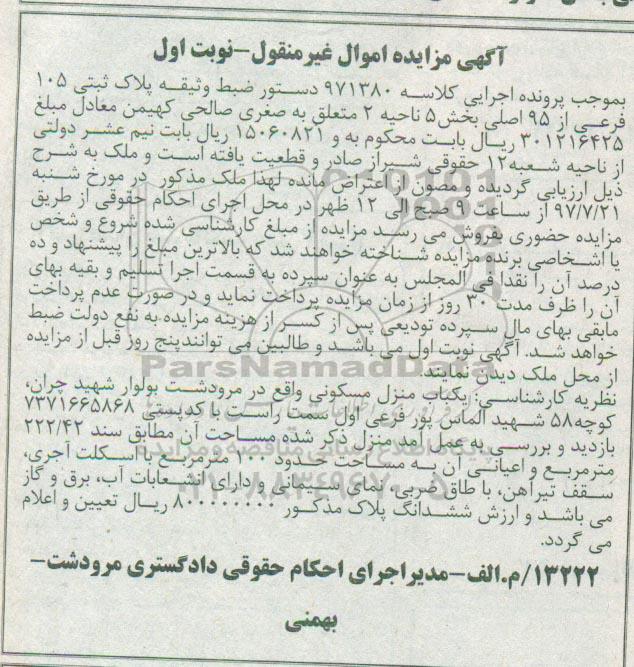 آگهی مزایده اموال غیرمنقول-نوبت اول
بموجب پرونده اجرایی کلاسه ۹۷۱۳۸۰ دستور ضبط وثیقه پلاک ثبتی ۱۰۵
فرعی از ۹۵ اصلی بخش۵ ناحیه ۲ متعلق به صغری صالحی کهیمن معادل مبلغ
۳۰۱۲۱۶۴۲۵ ریال بابت محکوم به و ۱۵۰۶۰۸۲۱ ریال بابت نیم عشر دولتی
از ناحیه شعبه۱۲ حقوقی شیراز صادر و قطعیت یافته است و ملک به شرح
ذیل ارزیابی گردیده و مصون از اعتراض مانده لهذا ملک مذکور در مورخ شنبه
۹۷/۷/۲۱ از ساعت ۹ صبح الی ۱۲ ظهر در محل اجرای احکام حقوقی از طریق
مزایده حضوری بفروش می رسد مزایده از مبلغ کارشناسی شده شروع و شخص
یا اشخاصی برنده مزایده شناخته خواهند شد که بالاترین مبلغ را پیشنهاد و ده
درصد آن را نقدا فی المجلس به عنوان سپرده به قسمت اجرا تسلیم و بقیه بهای
آن را ظرف مدت ۳۰ روز از زمان مزایده پرداخت نماید و در صورت عدم پرداخت
مابقی بهای مال سپرده تودیعی پس از کسر از هزینه مزایده به نفع دولت ضبط
خواهد شد. آگهی نوبت اول می باشد و طالبین می توانندپنج روز قبل از مزایده
از محل ملک دیدن نمایند.
ParsNamadData
نظریه کارشناسی: یکباب منزل مسکونی واقع در مرودشت بولوار شهید چران،
کوچه۵۸ شهید الماس پور فرعی اول سمت راست با کدپستی ۷۳۷۱۶۶۵۸۶۸
بازدید و بررسی به عمل امد منزل ذکر شده مساحت آن مطابق سند ۲۲۲/۴۲
مترمربع و اعیانی آن به مساحت حدود ۱۰۰ مترمربع با اسکلت آجری،
سقف تیراهن، با طاق ضربی، نمای سیمانی و دارای انشعابات آب، برق و گاز
می باشد و ارزش ششدانگ پلاک مذکور ۸۰۰۰۰۰۰۰۰ ریال تعیین و اعلام
می گردد.
۱۳۲۲۲/م.الف-مدیراجرای احکام حقوقی دادگستری مرودشت-
بهمنی